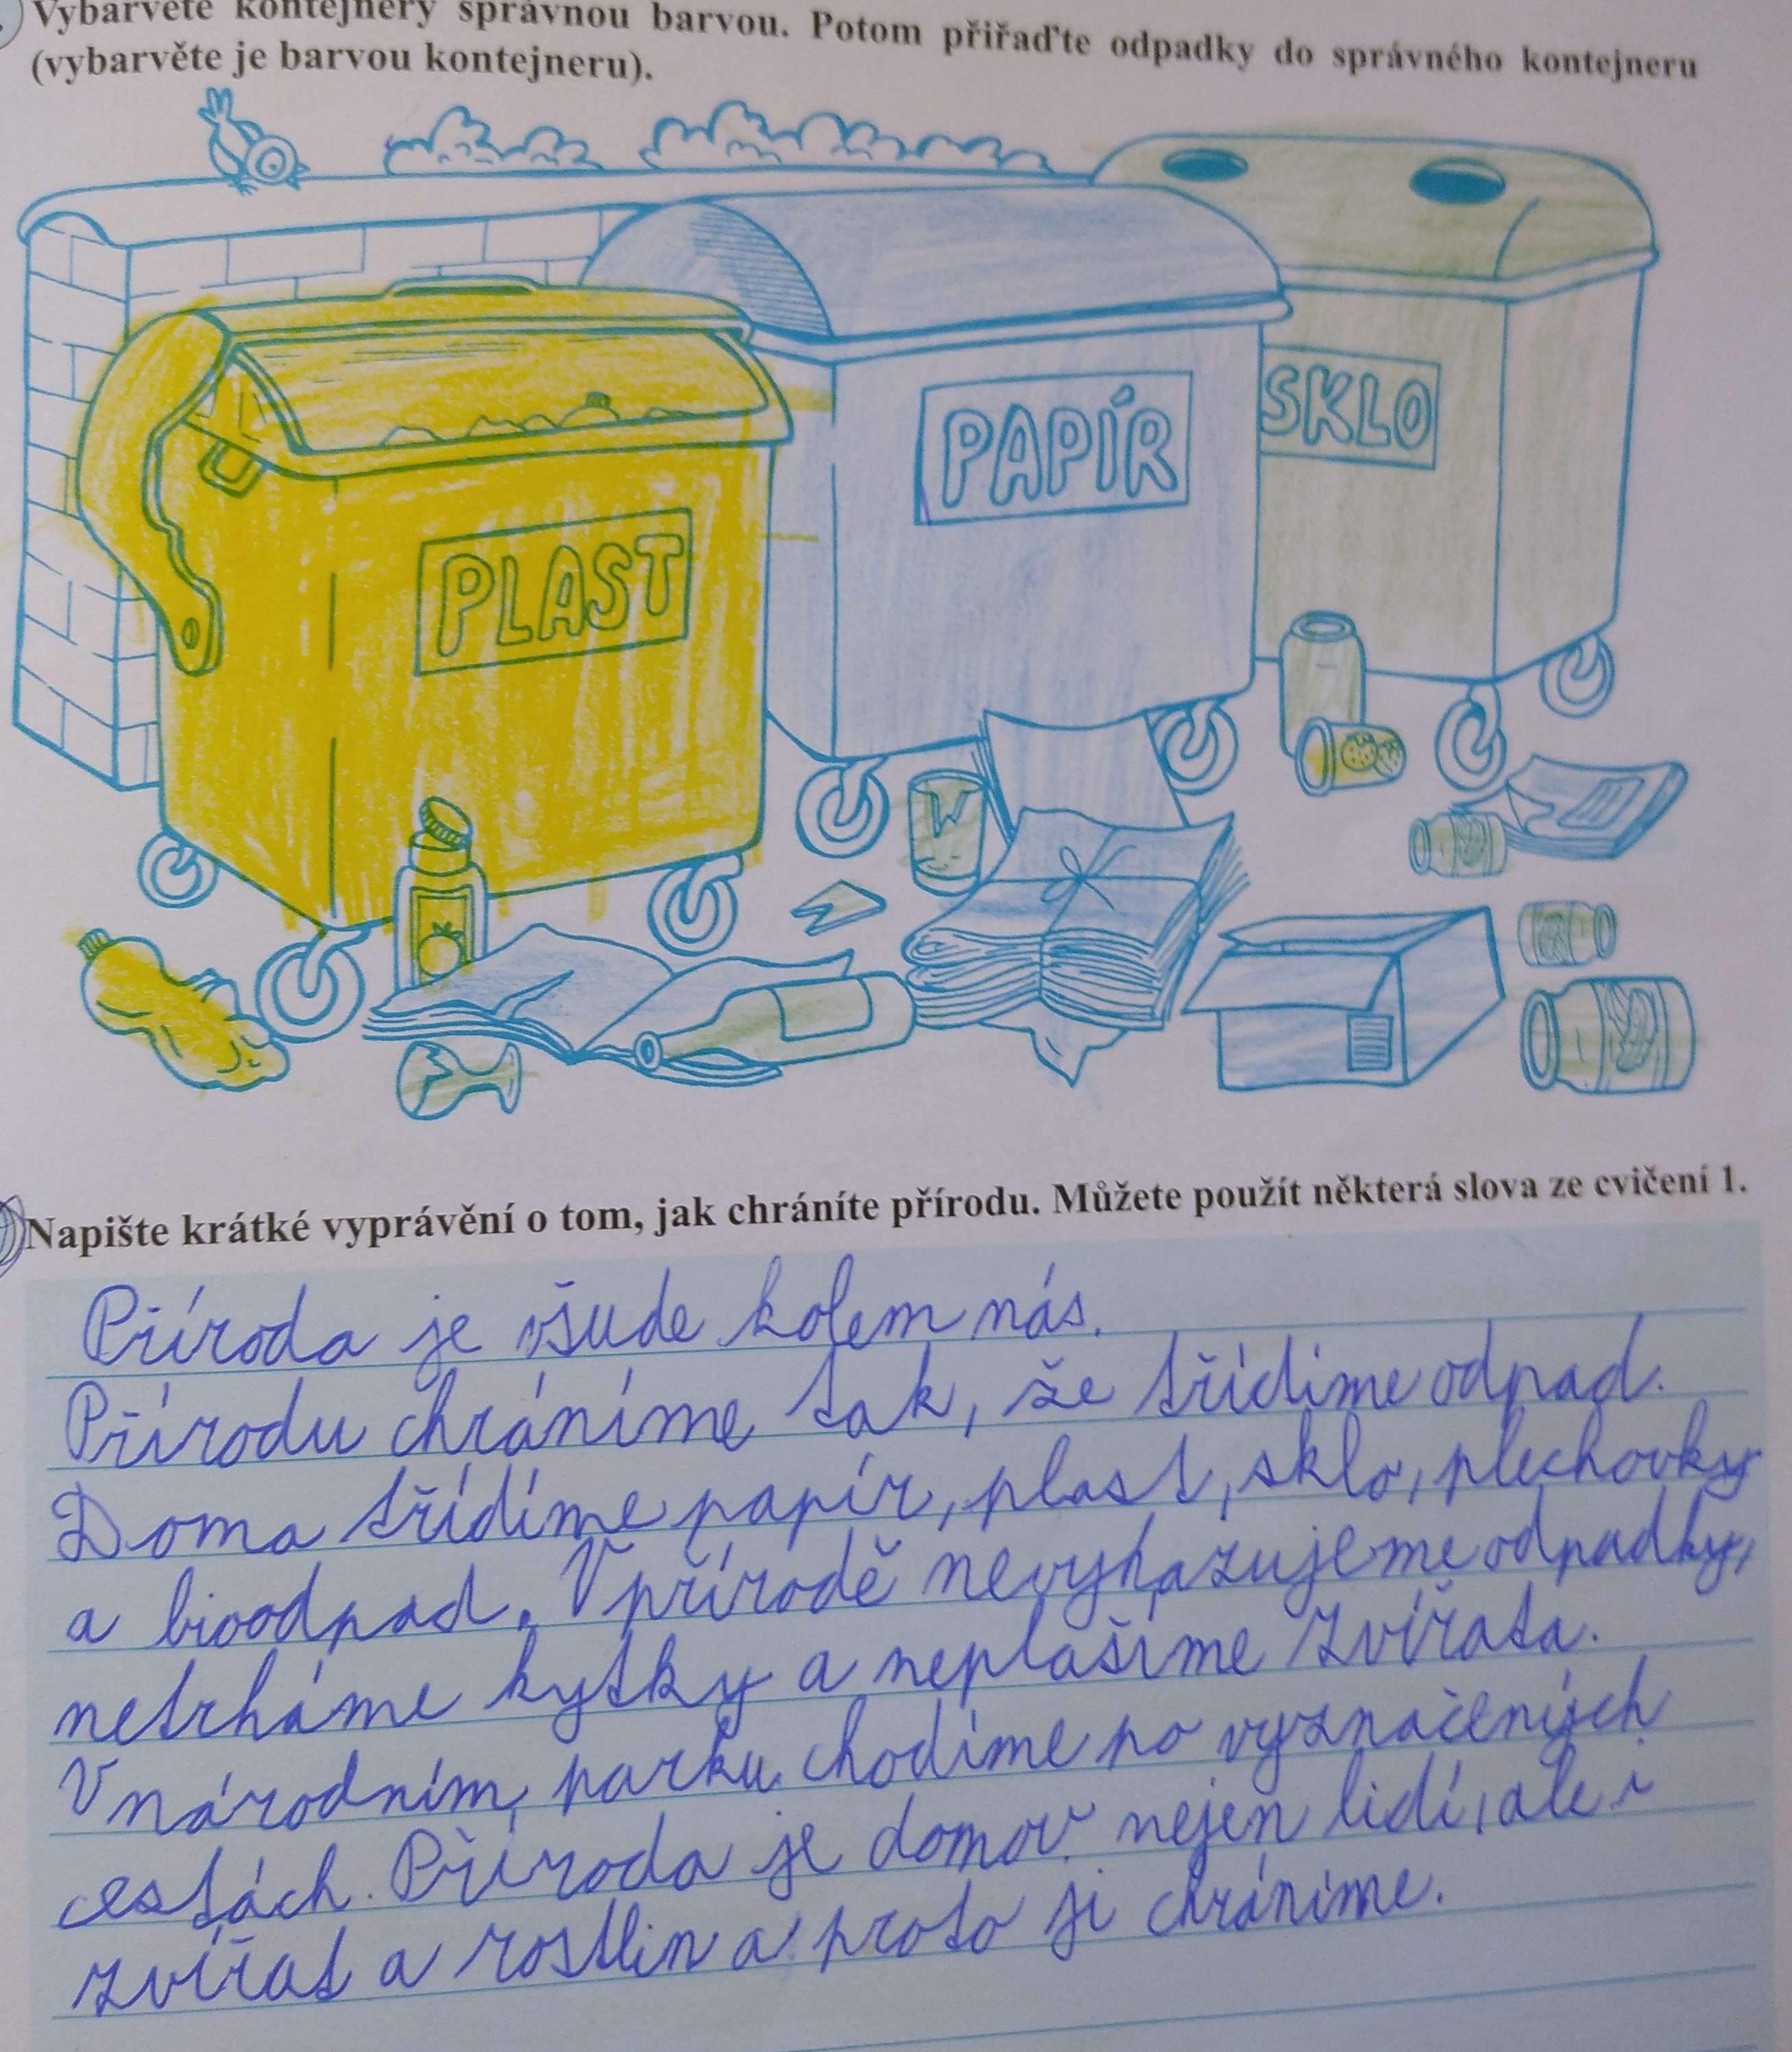 Vybarvěte kontejnery správnou barvou. Potom přiřaďte odpadky do správného kontejneru
(vybarvěte je barvou kontejneru).
SKLO
PAPÍR
PLAST
Napište krátké vyprávění o tom, jak chráníte přírodu. Můžete použít některá slova ze cvičení 1.
Příroda je všude kolem nás.
Přírodu chráníme tak, že třídíme odpad.
Doma třídíme papír, plast, sklo, plechovky
a bioodpad. V přírodě nevyhazujeme odpadky,
netrháme kytky a neplašíme zvířata.
V národním parku chodíme po vyznačených
cestách. Příroda je domov nejen lidí, ale i
zvířat a rostlin a proto ji chráníme.